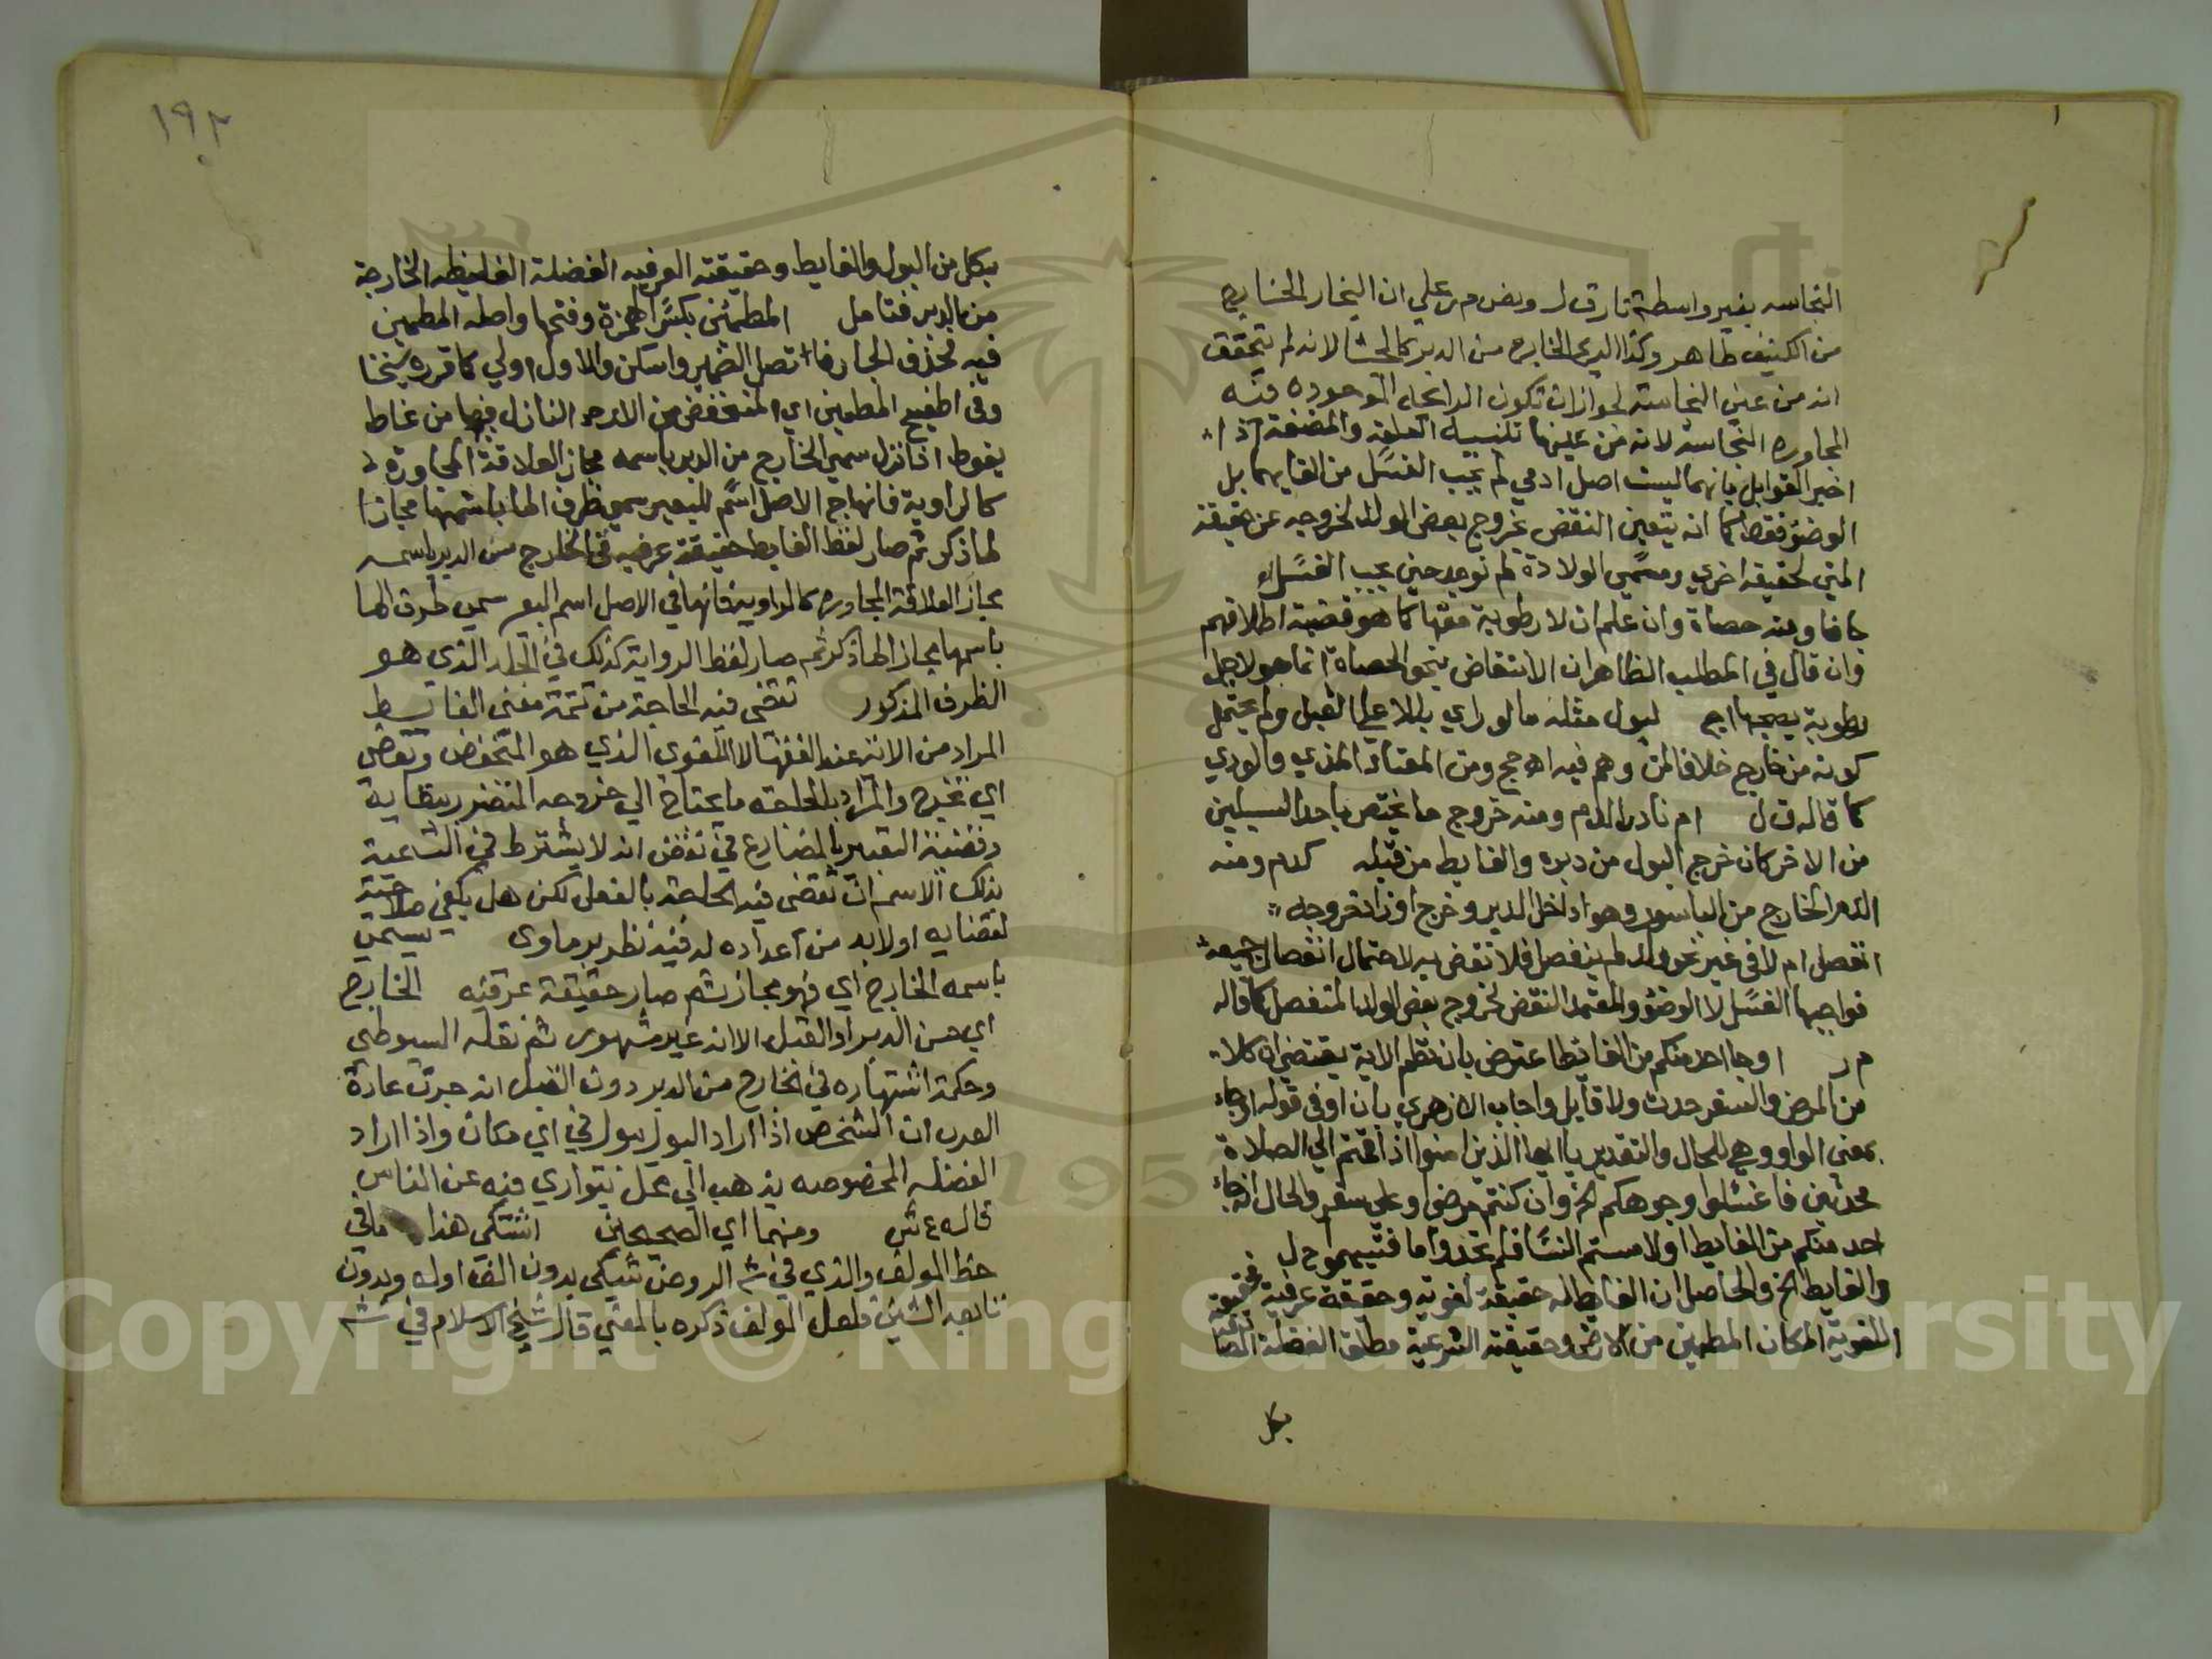 النجاسه بغير واسطة نار ق ل ونص م ر علي ان البخار الخارج
من الكنيف طاهر وكذا الريح الخارج من الدبر كالجشا لانه لم يتحقق
انه من عين النجاسة لجواز ان تكون الرائحة الموجوده فيه
المجاوره النجاسه لانه من عينها تنبيه العلقة والمضغة اذا
اخبر القوابل بانهما ليست اصل ادمي لم يجب الغسل من القايهما بل
الوضؤ فقط كما انه يتعين النقض بخروج بعض الولد لخروجه عن حقيقة
المني لحقيقه اخري ومسمي الولادة لم توجد حين يجب الغسل
جافا ومنه حصاة وان علم ان لا رطوبة معها كما هو قضية اطلاقهم
وان قال في المطلب الظاهر ان الانتقاض بنحو الحصاة انما هو لاجل
رطوبة يصحبها اج كبول مثله ما لو راي بللا علي القبل ولم يحتمل
كونه من خارج خلافا لمن وهم فيه اهـ حج ومن المعتاد المذي والودي
كما قاله ق ل ام نادرا لدم ومنه خروج ما يختص باحد السبيلين
من الاخر كان خرج البول من دبره والغايط من قبله كدم ومنه
الدم الخارج من الباسور وهو داخل الدبر وخرج او زاد خروجه
انفصل ام لا في غير نحو ولد لم ينفصل فلا نقض به لاحتمال انفصال جميعه
فواجبها الغسل لا الوضؤ والمعتمد النقض بخروج بعض الولد المتفصل كما قاله
م ر او جا احد منكم من الغايط اعترض بان نظم الاية يقتضي ان كلا
من المرض والسفر حدث ولا قايل واجاب الازهري بان او في قوله او جاء
بمعني الواو وهي للحال والتقدير يا ايها الذين امنوا اذا قمتم الي الصلاة
محدثين فاغسلوا وجوهكم الخ وان كنتم مرضي او علي سفر والحال انه جاء
احد منكم من الغايط او لامستم النسا فلم تجدوا ما فتيمموا ح ل
والغايط الخ والحاصل ان الغايط له حقيقة لغوية وحقيقة عرفية فحقيقته
اللغوية المكان المطمين من الارض وحقيقته الشرعية مطلق الفضلة
بكل
١٩٢
بكل من البول والغايط وحقيقته العرفيه الفضلة الغليظه الخارجة
من الدبر فتامل المطمئن بكسر الهمزة وفتحها واصله المطمين
فيه فحذف الجار فاتصل الضمير واستكن والاول اولي كما قرره شيخنا
وفي اطفيح المطمين اي المنخفض من الارض النازل فيها من غاط
يغوط اذا نزل سمي الخارج من الدبر باسمه مجاز العلاقة المجاورة
كما لراوية فانها في الاصل اسم للبعير سمي ظرف الما باسمها مجازا
لما ذكر ثم صار لفظ الغايط حقيقة عرفيه في الخارج من الدبر باسمه
مجاز العلاقة المجاوره كالراوية فانها في الاصل اسم البعير سمي ظرف الما
باسمها مجاز الما ذكر ثم صار لفظ الرواية كذلك في الجلد الذي هو
الظرف المذكور تقضي فيه الحاجة من تتمة معني الغايط
المراد من الاية عند الفقها لا اللغوي الذي هو المنخفض وتقضي
اي تخرج والمراد بالحاجة ما يحتاج الي خروجه المتضرر ببقايه
وقضية التعبير بالمضارع في تقضي انه لا يشترط في التسمية
بذلك الاسم ان تقضي فيه الحاجة بالفعل لكن هل يكفي صلاحيته
لقضايه او لابد من اعداده له فيه نظر برماوي يسمي
باسمه الخارج اي فهو مجاز ثم صار حقيقة عرفيه الخارج
اي من الدبر او القبل الا انه غير مشهور ثم نقله السيوطي
وحكمة اشتهاره في الخارج من الدبر دون القبل انه جرت عادة
العرب ان الشخص اذا اراد البول يبول في اي مكان واذا اراد
الفضله المخصوصه يذهب الي محل يتواري فيه عن الناس
قاله ع ش ومنهما اي الصحيحين اشتكي هذا مافي
خط المولف والذي في شـ الروض شكي بدون الف اوله وبدون
تا بعد الشين فلعل المولف ذكره بالمعني قال شيخ الاسلام في شـ
Copyright © King Saud University